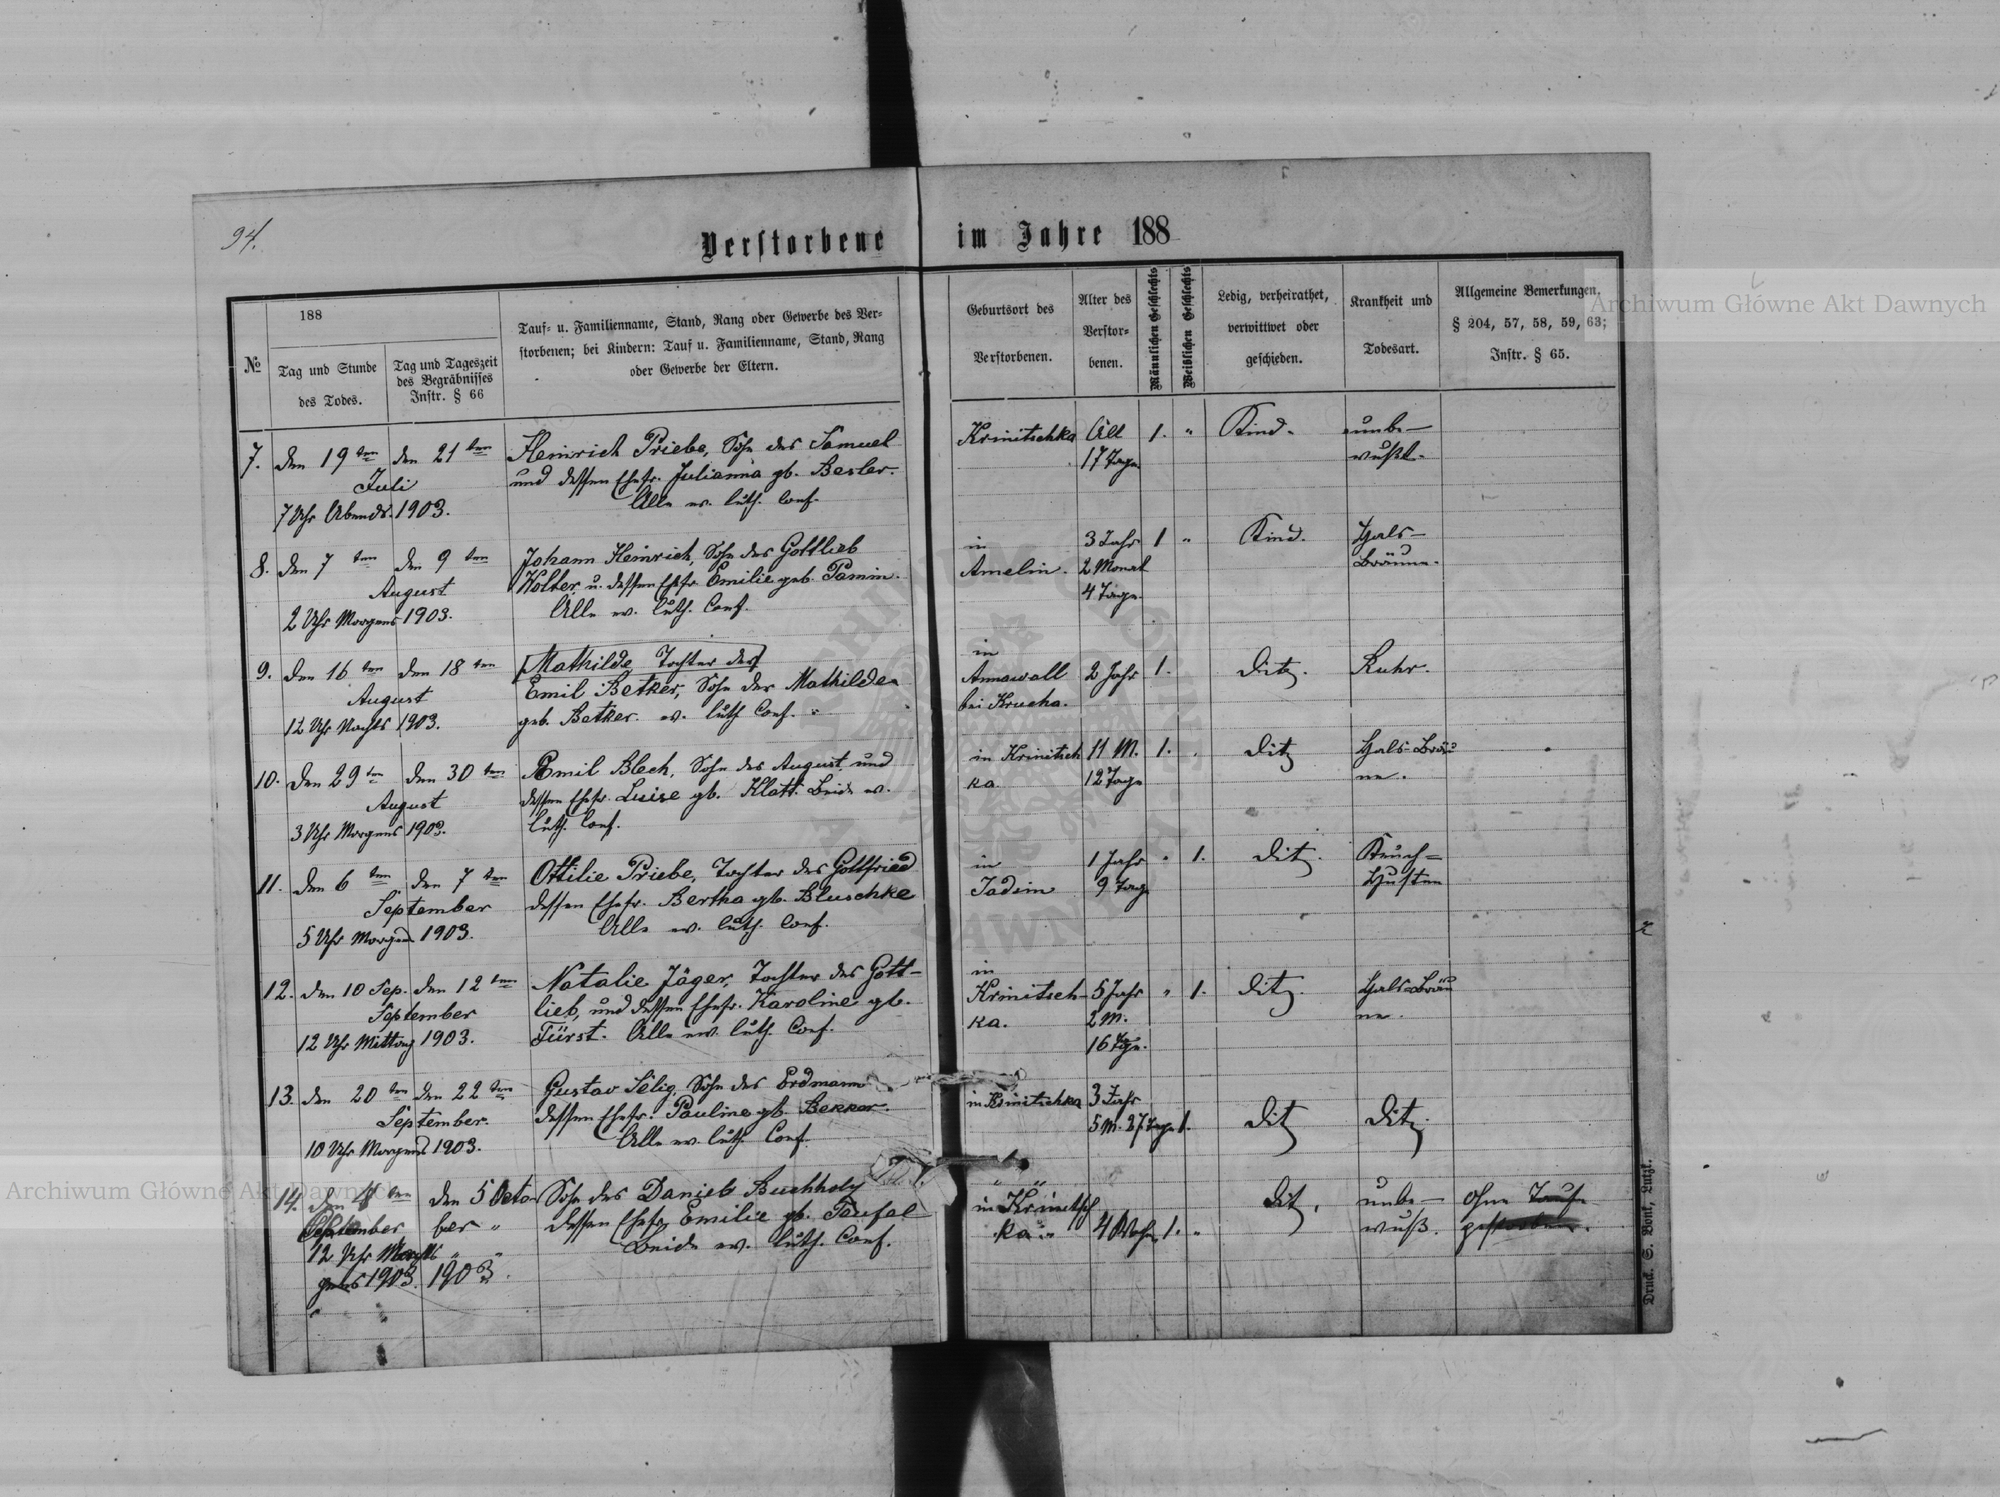 94.
Verstorbene im Jahre 188
№
188
Tag und Stunde
des Todes.
Tag und Tageszeit
des Begräbnisses
Instr. § 66
Tauf- u. Familienname, Stand, Rang oder Gewerbe des Ver-
storbenen; bei Kindern: Tauf u. Familienname, Stand, Rang
oder Gewerbe der Eltern.
Geburtsort des
Verstorbenen.
Alter des
Verstor-
benen.
Männlichen Geschlechts
Weiblichen Geschlechts
Ledig, verheirathet,
verwittwet oder
geschieden.
Krankheit und
Todesart.
Allgemeine Bemerkungen.
§ 204, 57, 58, 59, 63;
Instr. § 65.
7. den 19ten den 21ten Heinrich Priebe, Sohn des Samuel Krinitschka Alt 1. " Kind. unbe-
Juli und dessen Ehefr. Julianna gb. Besler. 17 Tage wußt.
7 Uhr Abends. 1903. Alle ev. luth. Conf.
8. den 7ten den 9ten Johann Heinrich, Sohn des Gottlieb in 3 Jahr 1 " Kind. Hals-
August Wolter u. dessen Ehefr. Emilie geb. Pamin. Amelin. 2 Monat Bräune.
2 Uhr Morgens 1903. Alle ev. luth. Conf. 4 Tage.
9. den 16ten den 18ten Mathilde, Tochter des in
August Emil Betker, Sohn der Mathilde Annawall 2 Jahr 1. ditz. Ruhr.
12 Uhr Nachts 1903. geb. Betker. ev. luth Conf. " bei Krucha.
10. den 29ten den 30ten Emil Blech, Sohn des August und in Krinitsch 11 M. 1. ditz Hals-Bräu
August dessen Ehefr. Luise gb. Klatt. Beide ev. ka. 12 Tage ne.
3 Uhr Morgens 1903. luth. Conf.
11. den 6ten den 7ten Ottilie Priebe, Tochter des Gottfried in 1 Jahr " 1. ditz. Keuch=
September dessen Ehefr. Bertha gb. Bluschke Jadsin 9 Tage Husten
5 Uhr Morgens 1903. Alle ev. luth. Conf.
12. den 10 Sep. den 12ten Natalie Jäger, Tochter des Gott- in
September lieb, und dessen Ehefr. Karoline gb. Krinitsch- 5 Jahr " 1. ditz. Hals-Bräu
12 Uhr Mittag 1903. Fürst. Alle ev. luth. Conf. ka. 2 M. ne.
16 Tge.
13. den 20ten den 22ten Gustav Selig, Sohn des Erdmann in Krinitschka 3 Jahr
September. dessen Ehefr. Pauline gb. Bekker. 5 M. 27 Tage 1. ditz ditz.
10 Uhr Morgens 1903. Alle ev. luth. Conf.
14. den ten den 5 Octo- Sohn des Daniel Buchholz in Krinitsch ditz. unbe- ohne Taufe
September ber " dessen Ehefr. Emilie gb. Teufel ka. " 4 Woch. 1. " wuß. gestorben.
12 Uhr " " Beide ev. luth. Conf.
1903. 1903.
Druck. S. Bont, Lutzk.
Archiwum Główne Akt Dawnych
Archiwum Główne Akt Dawnych